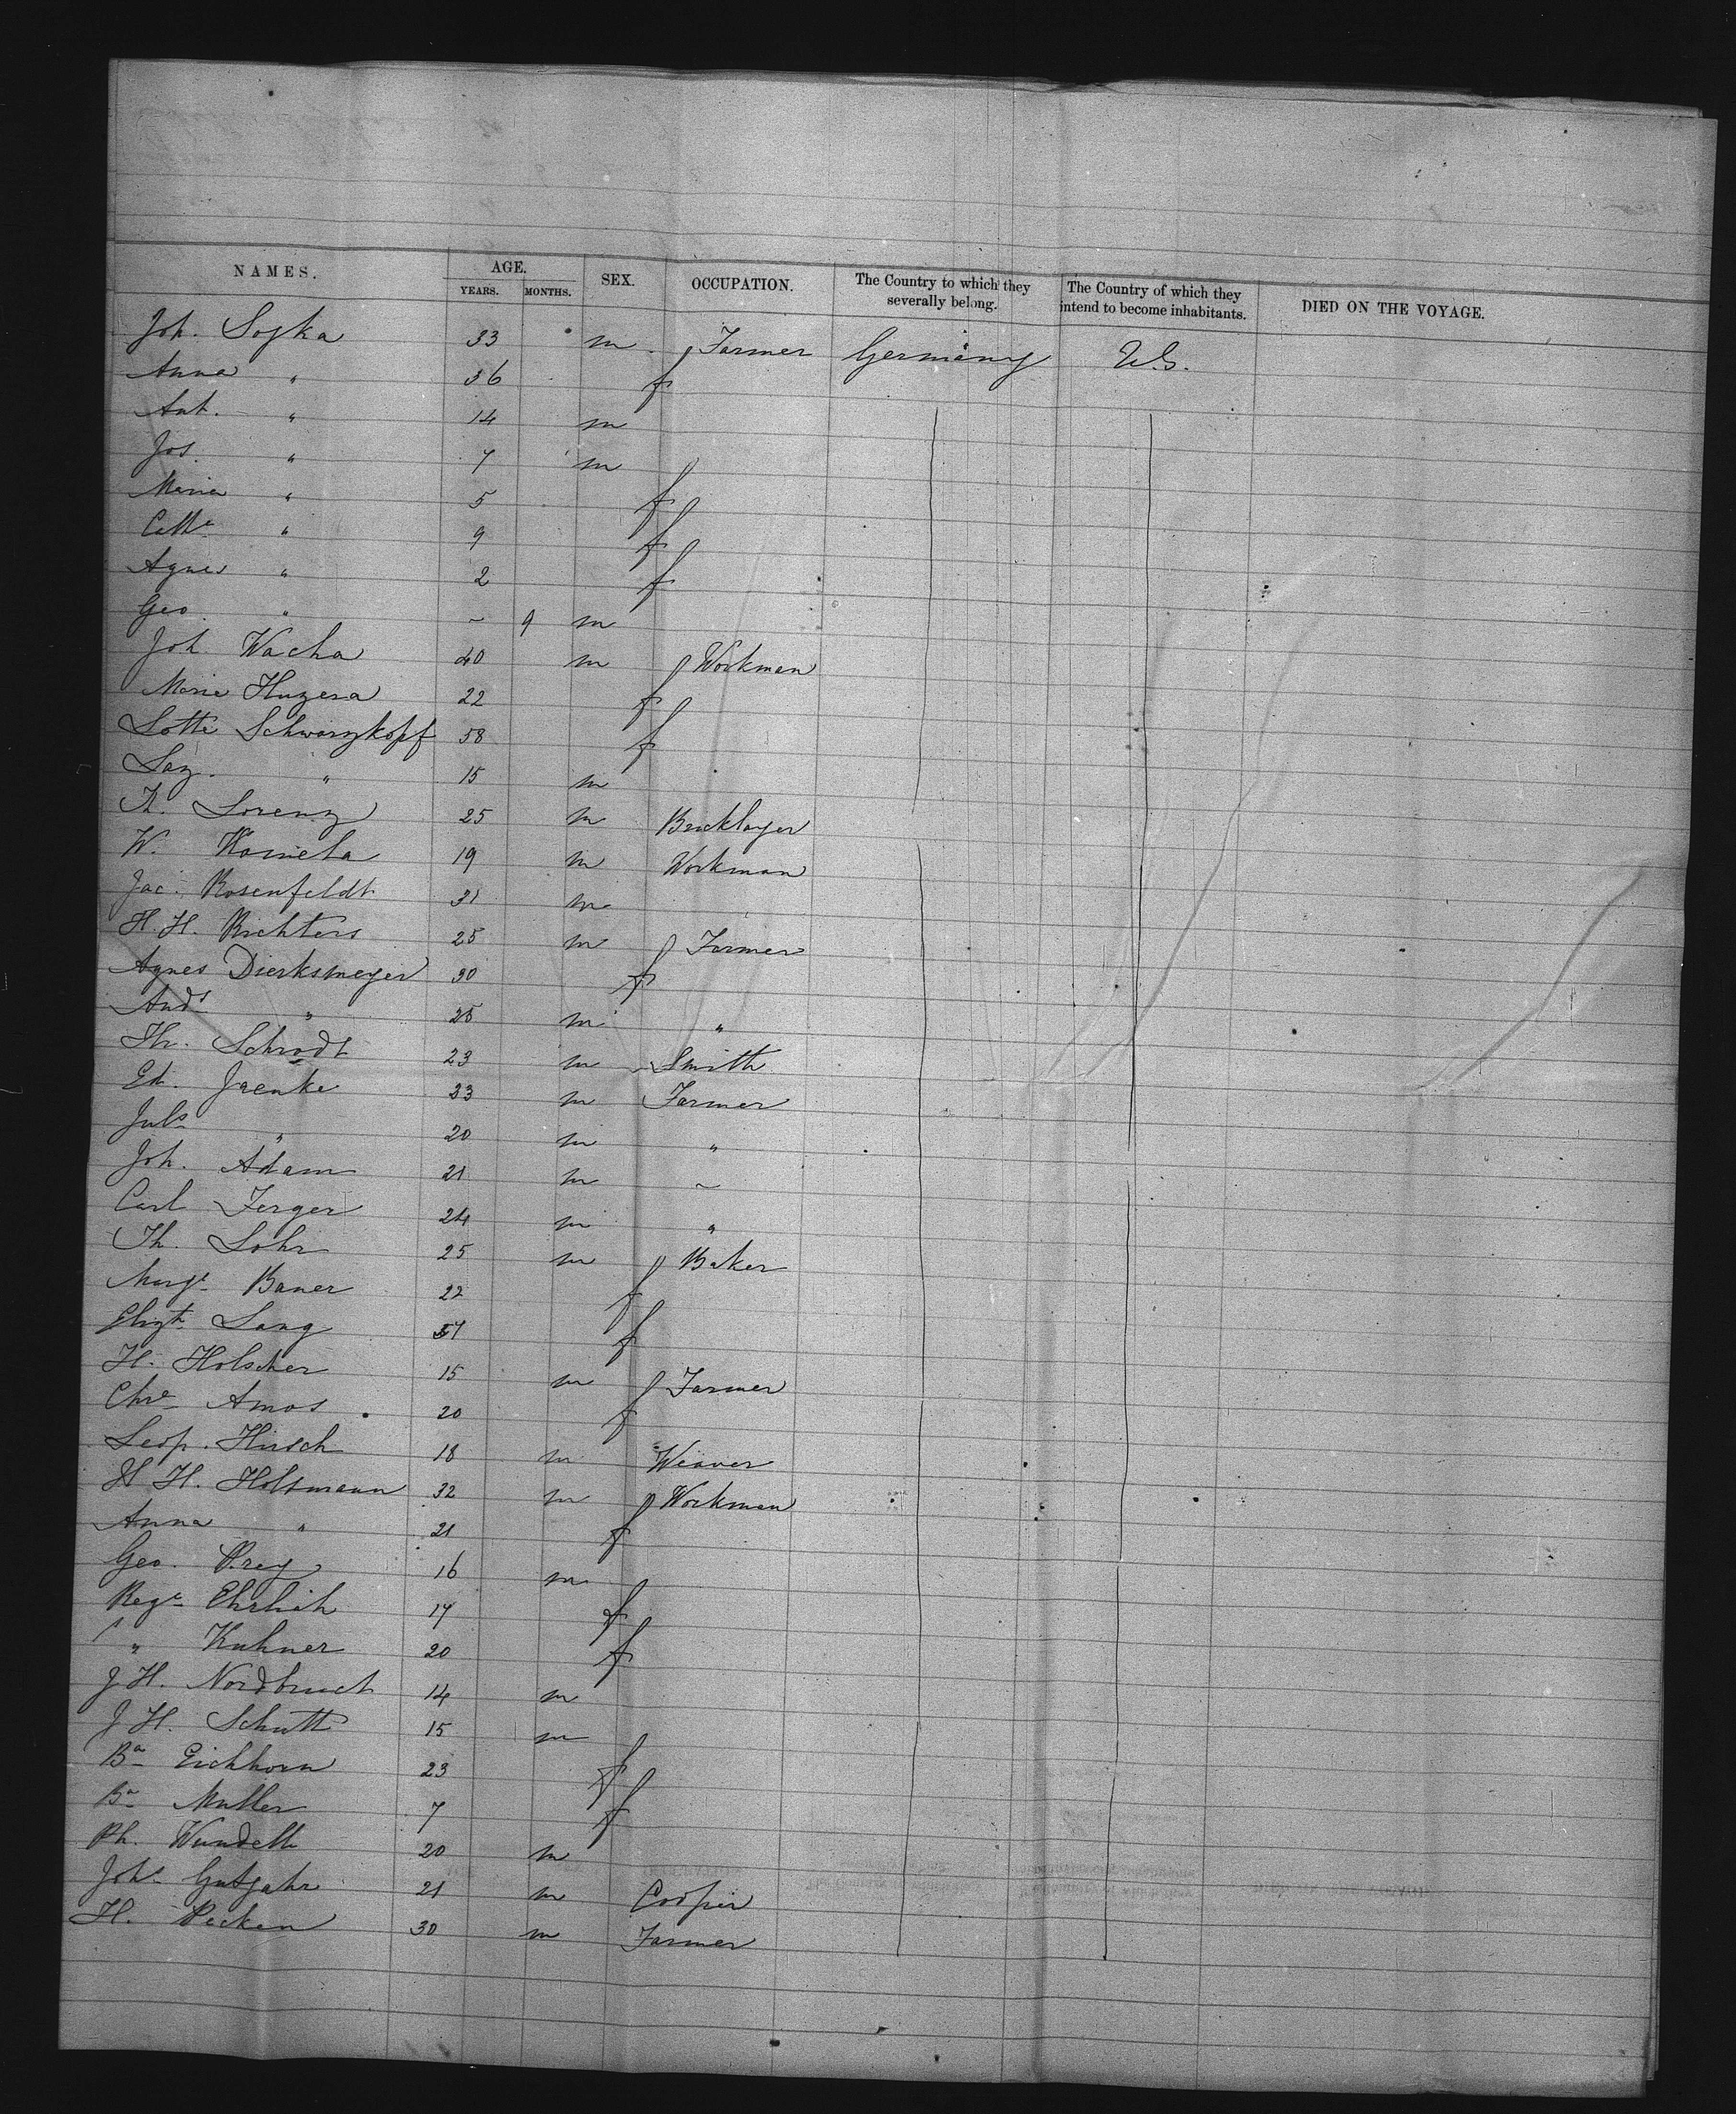 NAMES. AGE. SEX. OCCUPATION. The Country to which they severally belong. The Country of which they intend to become inhabitants. DIED ON THE VOYAGE.
YEARS. MONTHS.
Joh. Sojka 33 m Farmer Germany U.S.
Anna " 36 f
Ant. " 14 m
Jos. " 7 m
Maria " 5 f
Cathe " 9 f
Agnes " 2 f
Geo. " ~ 9 m
Joh. Wacha 40 m Workman
Marie Huzera 22 f
Lotte Schwarzkopf 58 f
Laz. " 15 m
Lorenz 25 m Bricklayer
W. 19 m Workman
Jac. Rosenfeldt 31 m
H. H. Richters 25 m Farmer
Agnes Dierksmeyer 30 f
Ands " 25 m "
Schrodt 23 m Smith
Ed. Jaenke 23 m Farmer
Juls " 20 m "
Joh. Adam 21 m ~
Carl Ferger 24 m "
Th. Lohr 25 m Baker
Margt Bauer 22 f
Elizth Lang f
H. Holscher 15 m Farmer
Chre Amos 20 f
Leop. Hirsch 18 m Weaver
H. H. Holtmann 32 m Workman
Anna " 21 f
Geo. Prey 16 m
Rega Ehrlich 17 f
" Kuhner 20 f
J. H. Nordbruch 14 m
J. H. Schutt 15 m
Ba Eichhorn 23 f
Ba Muller 7 f
Ph. Wundelh 20 m
Johs Gutjahr 21 m Cooper
H. Pecken 30 m Farmer